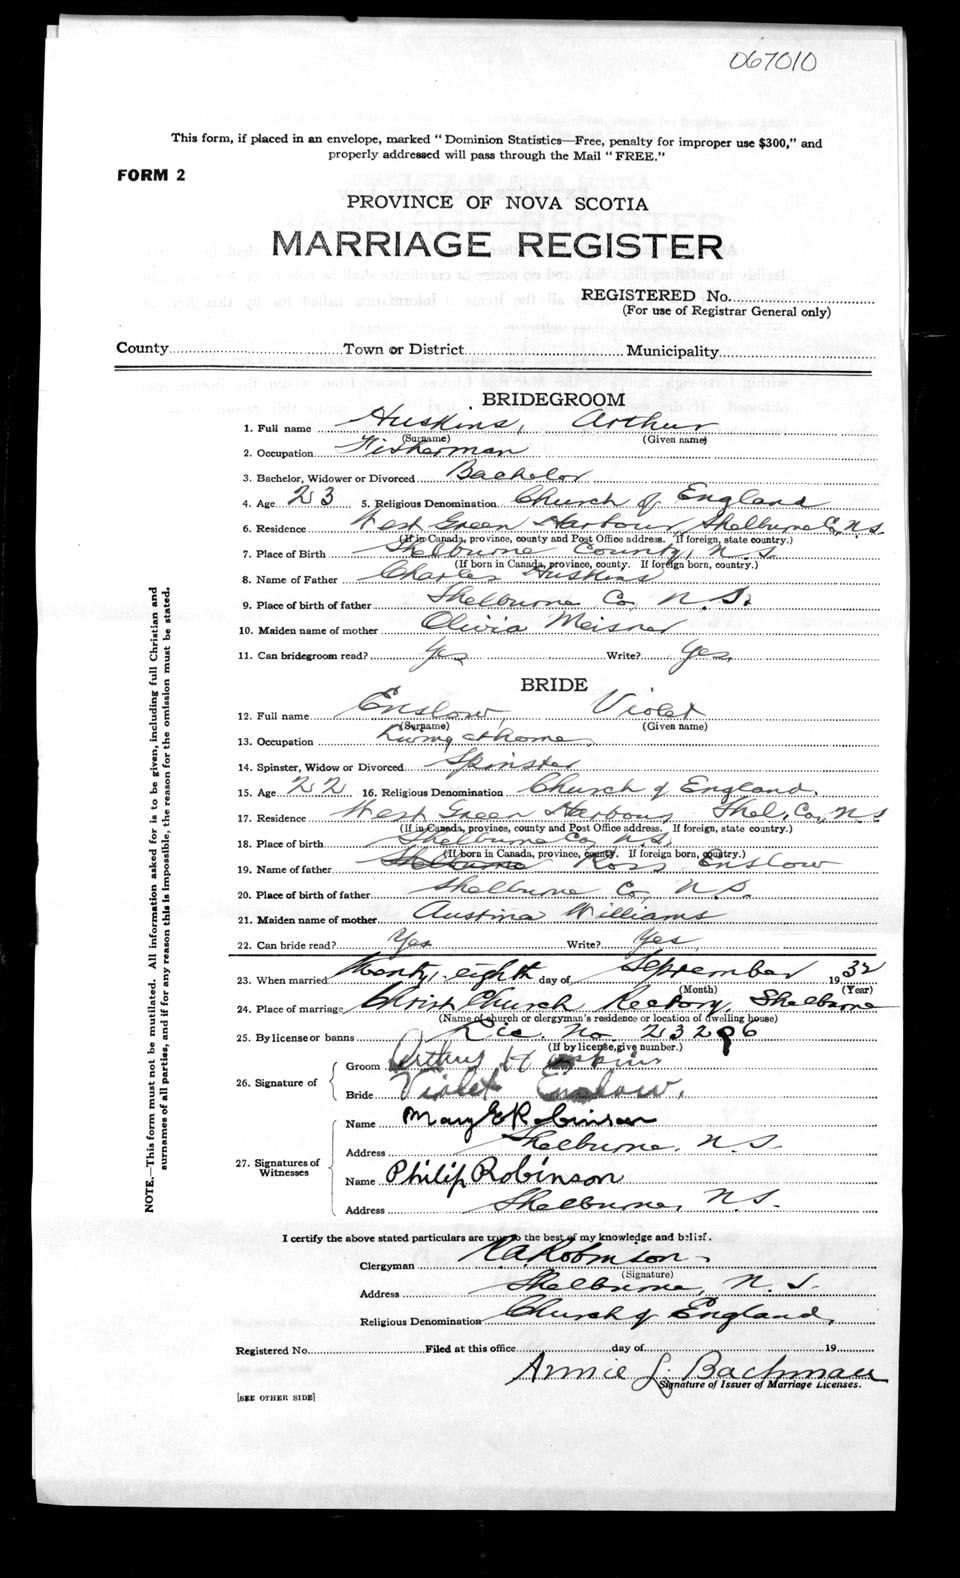 067010
This form, if placed in an envelope, marked "Dominion Statistics—Free, penalty for improper use $300," and
properly addressed will pass through the Mail "FREE."
FORM 2
PROVINCE OF NOVA SCOTIA
MARRIAGE REGISTER
REGISTERED No.
(For use of Registrar General only)
County Town or District Municipality
BRIDEGROOM
1. Full name Huskins, Arthur
(Surname) (Given name)
2. Occupation Fisherman
3. Bachelor, Widower or Divorced Bachelor
4. Age 23 5. Religious Denomination Church of England
6. Residence West Green Harbour, Shelburne Co, N.S.
(If in Canada, province, county and Post Office address. If foreign, state country.)
7. Place of Birth Shelburne County, N.S.
(If born in Canada, province, county. If foreign born, country.)
8. Name of Father Charles Huskins
9. Place of birth of father Shelburne Co, N.S.
10. Maiden name of mother Olivia Meisner
11. Can bridegroom read? Yes Write? Yes,
BRIDE
12. Full name Enslow, Violet
(Surname) (Given name)
13. Occupation Living at home,
14. Spinster, Widow or Divorced Spinster
15. Age 22 16. Religious Denomination Church of England,
17. Residence West Green Harbour, Shel, Co, N.S
(If in Canada, province, county and Post Office address. If foreign, state country.)
18. Place of birth Shelburne Co, N.S.
(If born in Canada, province, county. If foreign born, country.)
19. Name of father Shelburne Ross Enslow
20. Place of birth of father Shelburne Co, N.S.
21. Maiden name of mother Austina Williams
22. Can bride read? Yes Write? Yes,
23. When married Twenty-eighth day of September 1932
(Month) (Year)
24. Place of marriage Christ Church Rectory, Shelburne
(Name of church or clergyman's residence or location of dwelling house)
25. By license or banns Lic. No. 23296
(If by license, give number.)
26. Signature of
Groom Arthur Huskins
Bride Violet Enslow,
27. Signatures of Witnesses
Name Mary E Robinson
Address Shelburne, N.S.
Name Philip Robinson
Address Shelburne, N.S.
I certify the above stated particulars are true to the best of my knowledge and belief.
Clergyman Robinson
(Signature)
Address Shelburne, N.S.
Religious Denomination Church of England,
Registered No. Filed at this office day of 19
Annie L. Bachman
Signature of Issuer of Marriage Licenses.
[SEE OTHER SIDE]
NOTE.—This form must not be mutilated. All information asked for is to be given, including full Christian and
surnames of all parties, and if for any reason this is impossible, the reason for the omission must be stated.